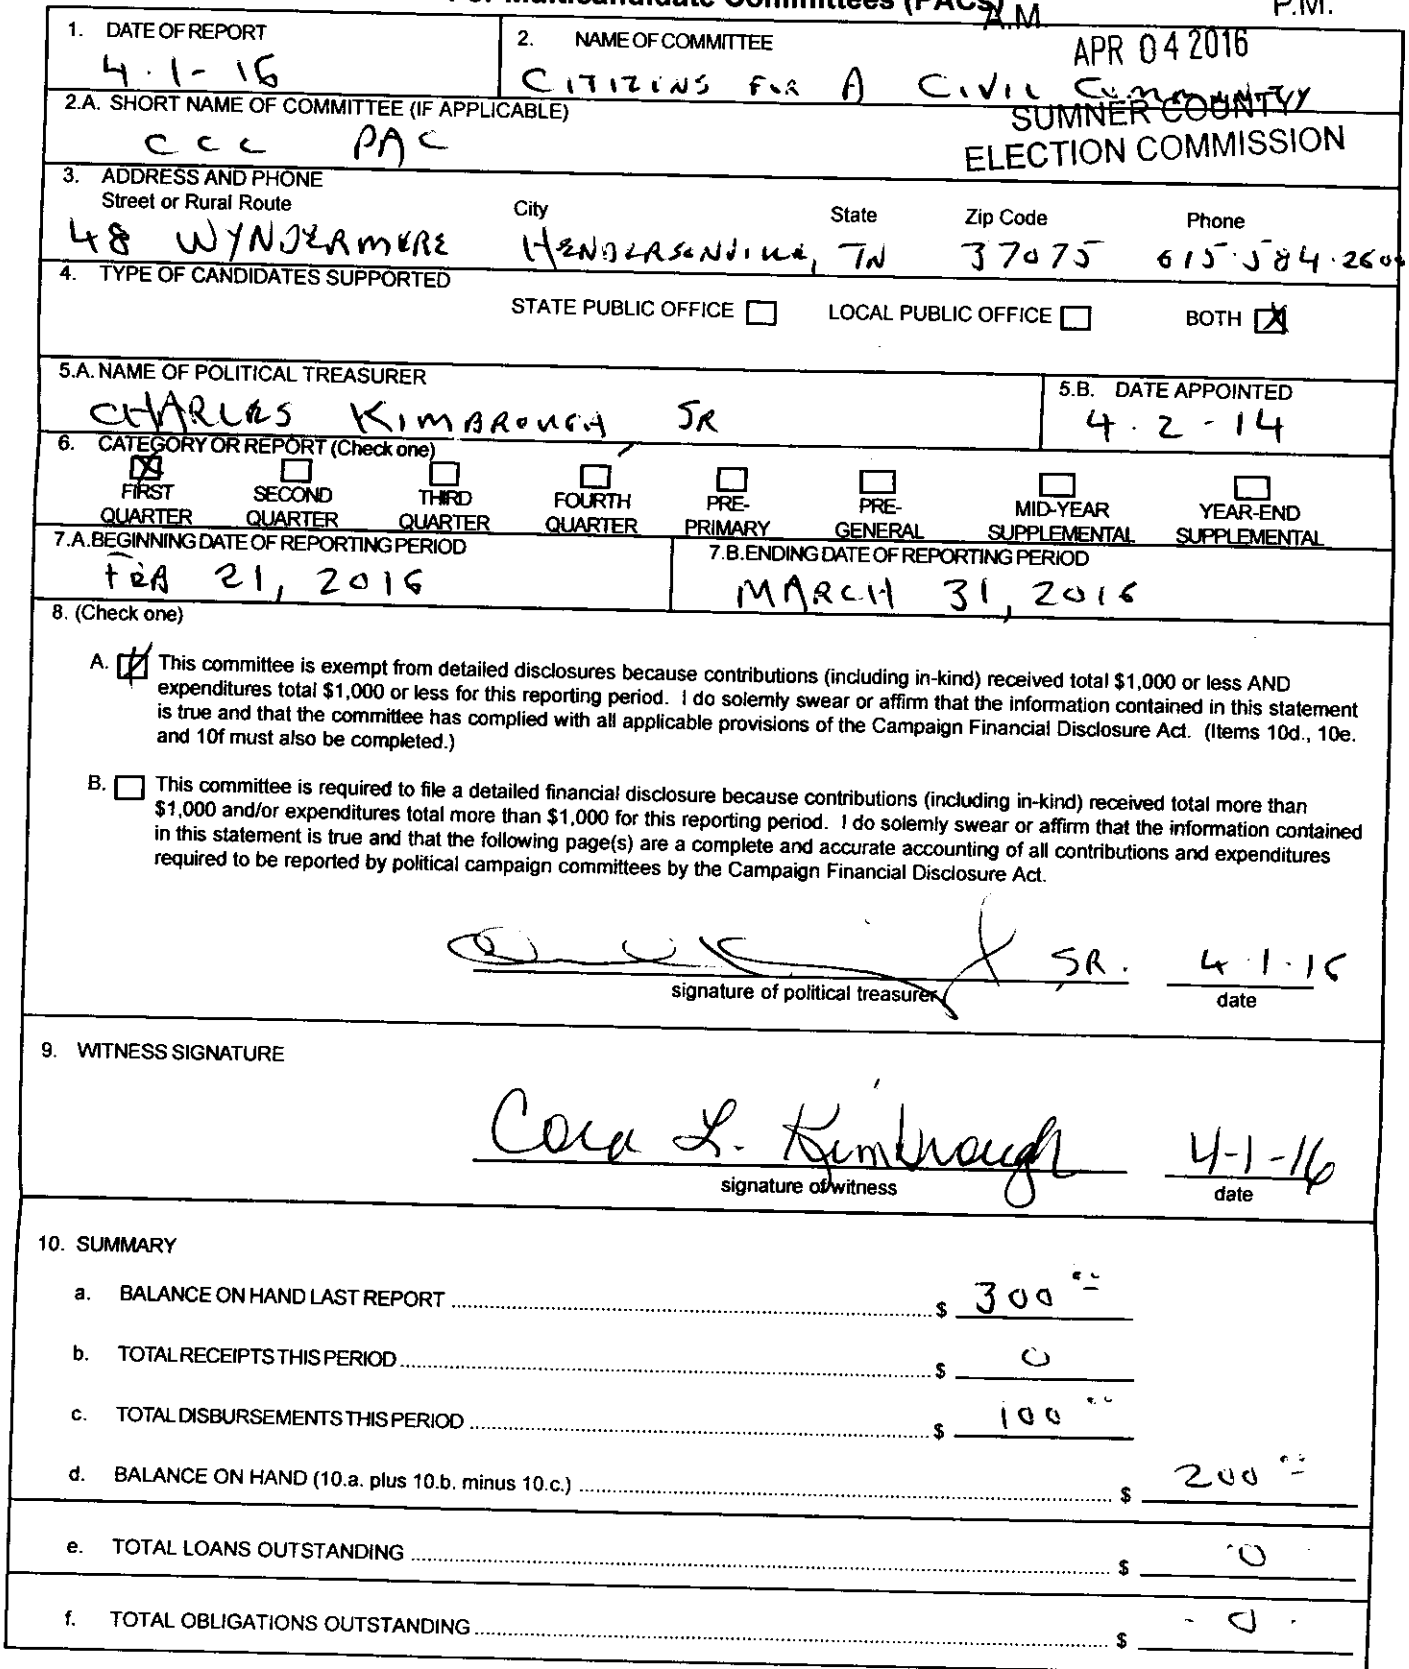 For Multicandidate Committees (PACs)
A.M.
P.M.
1. DATE OF REPORT
4-1-16
2. NAME OF COMMITTEE
CITIZENS FOR A CIVIL COMMUNITY
APR 04 2016
SUMNER COUNTY
ELECTION COMMISSION
2.A. SHORT NAME OF COMMITTEE (IF APPLICABLE)
CCC PAC
3. ADDRESS AND PHONE
Street or Rural Route City State Zip Code Phone
48 WYNDERMERE HENDERSONVILLE, TN 37075 615.584.260
4. TYPE OF CANDIDATES SUPPORTED
STATE PUBLIC OFFICE LOCAL PUBLIC OFFICE BOTH X
5.A. NAME OF POLITICAL TREASURER
CHARLES KIMBROUGH SR
5.B. DATE APPOINTED
4.2-14
6. CATEGORY OR REPORT (Check one)
X
FIRST QUARTER SECOND QUARTER THIRD QUARTER FOURTH QUARTER PRE-PRIMARY PRE-GENERAL MID-YEAR SUPPLEMENTAL YEAR-END SUPPLEMENTAL
7.A. BEGINNING DATE OF REPORTING PERIOD
FEB 21, 2016
7.B. ENDING DATE OF REPORTING PERIOD
MARCH 31, 2016
8. (Check one)
A. This committee is exempt from detailed disclosures because contributions (including in-kind) received total $1,000 or less AND
expenditures total $1,000 or less for this reporting period. I do solemly swear or affirm that the information contained in this statement
is true and that the committee has complied with all applicable provisions of the Campaign Financial Disclosure Act. (Items 10d., 10e.
and 10f must also be completed.)
B. This committee is required to file a detailed financial disclosure because contributions (including in-kind) received total more than
$1,000 and/or expenditures total more than $1,000 for this reporting period. I do solemly swear or affirm that the information contained
in this statement is true and that the following page(s) are a complete and accurate accounting of all contributions and expenditures
required to be reported by political campaign committees by the Campaign Financial Disclosure Act.
SR. 4.1.16
signature of political treasurer date
9. WITNESS SIGNATURE
Cora L. Kimbrough 4-1-16
signature of witness date
10. SUMMARY
a. BALANCE ON HAND LAST REPORT $ 300 00
b. TOTAL RECEIPTS THIS PERIOD $ 0
c. TOTAL DISBURSEMENTS THIS PERIOD $ 100 00
d. BALANCE ON HAND (10.a. plus 10.b. minus 10.c.) $ 200 00
e. TOTAL LOANS OUTSTANDING $ 0
f. TOTAL OBLIGATIONS OUTSTANDING $ - 0 -